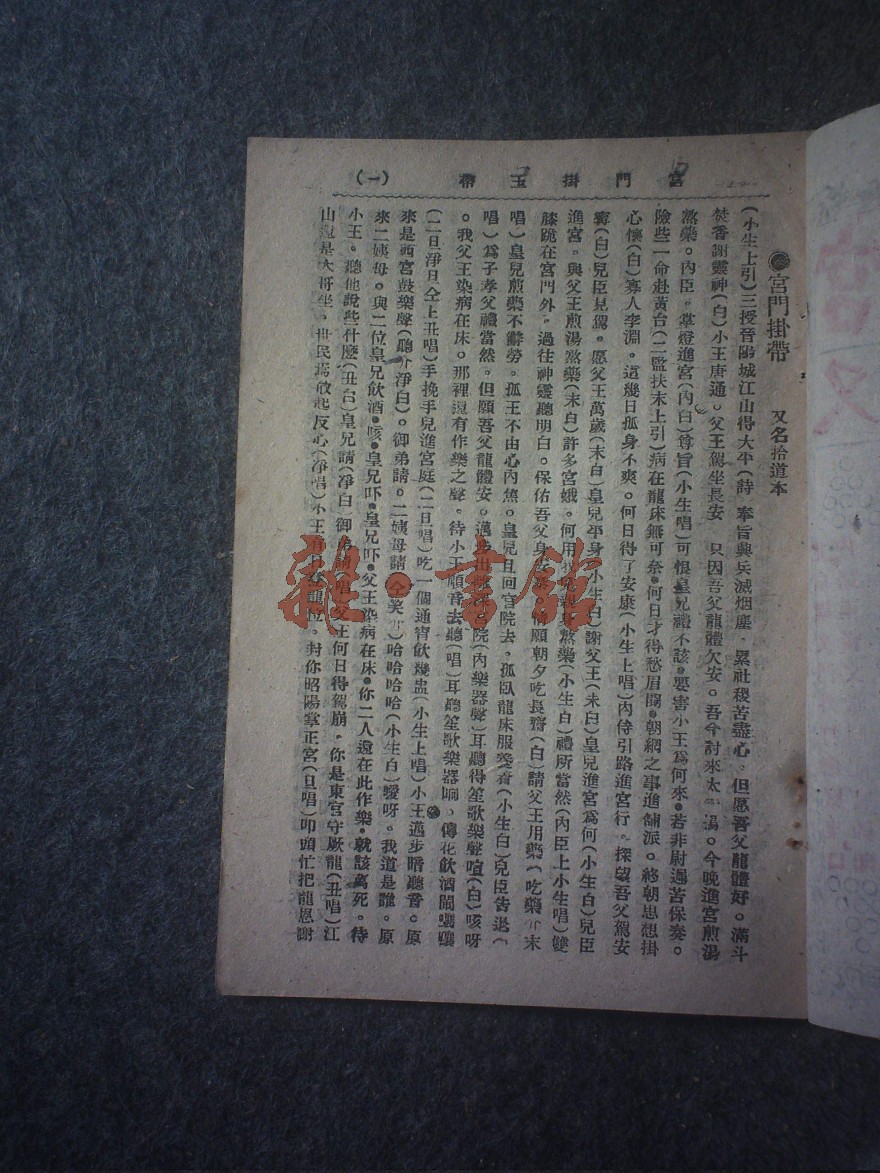 宮門掛玉帶 (一)
宮門掛帶 又名拾道本
(小生上引)三授晉陽城江山得太平(詩)奉旨興兵滅烟塵。累社稷苦盡心。但愿吾父龍體好。滿斗
焚香謝靈神(白)小王唐通。父王駕坐長安 只因吾父龍體欠安。吾今討來太 湯。今晚進宮煎湯
熬藥。內臣。掌燈進宮(內白)尊旨(小生唱)可恨皇兄禮不該。要害小王爲何來。若非尉遲苦保奏。
險些一命赴黃台(二監扶末上引)病在龍床無可奈。何日才得愁眉開。朝綱之事進舖派。終朝思想掛
心懷(白)寡人李淵。這幾日孤身不爽。何日得了安康(小生上唱)內侍引路進宮行。探望吾父駕安
寧(白)兒臣見駕。愿父王萬歲(末白)皇兒平身(小生白)謝父王(末白)皇兒進宮爲何(小生白)兒臣
進宮。與父王煎湯熬藥(末白)許多宮娥。何用 熬藥(小生白)禮所當然(內臣上小生唱)雙
膝跪在宮門外。過往神靈聽明白。保佑吾父身安 愿朝夕吃長齋(白)請父王用藥(吃藥介末
唱)皇兒煎藥不辭勞。孤王不由心內焦。皇兒且回宮院去。孤臥龍床服 (小生白)兒臣告退(
唱)爲子孝父禮當然。但願吾父龍體安。邁步出 宮院(內樂器聲)耳聽得笙歌樂聲喧(白)咳呀
。我父王染病在床。那裡還有作樂之聲。待小王順音去聽(唱)耳聽笙歌樂器响。傳花飲酒鬧嚷嚷
(二旦淨丑仝上丑唱)手挽手兒進宮庭(二旦唱)吃一個通宵飲幾盅(小生上唱)小王邁步暗聽音。原
來是西宮鼓樂聲(聽介淨白)。御弟請。二姨母請(仝笑介)哈哈哈哈(小生白)嗳呀。我道是誰。原
來二姨母。與二位皇兄飲酒。咳。皇兄吓。皇兄吓。父王染病在床。你二人還在此作樂。就該萬死。待
小王。聽他說些什麼(丑白)皇兄請(淨白)御弟請(唱)父王何日得駕崩。你是東宮守厥龍(丑唱)江
山 是大哥坐。世民焉敢起反心(淨唱)小王有日登龍位。封你昭陽掌正宮(旦唱)叩頭忙把龍恩謝
雜·書館